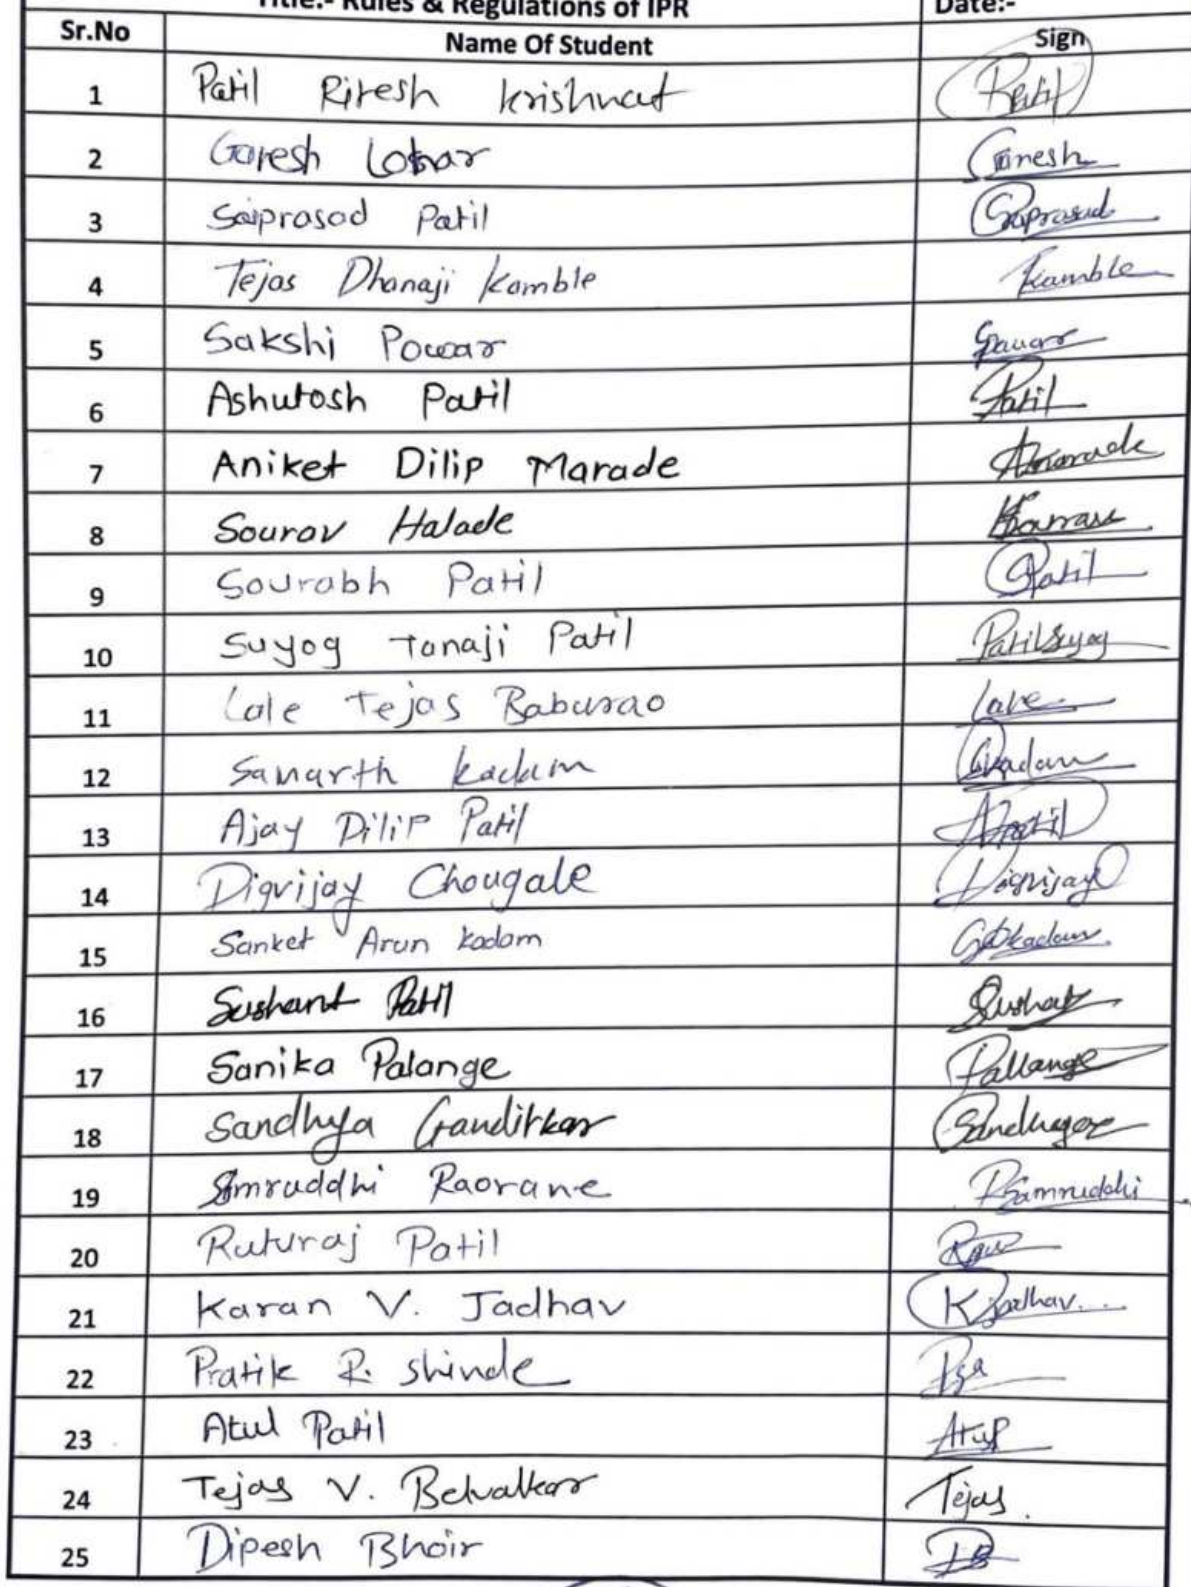 Title:- Rules & Regulations of IPR Date:-
Sr.No Name Of Student Sign
1 Patil Ritesh Krishnat Patil
2 Ganesh Lohar Ganesh
3 Saiprasad Patil Saiprasad
4 Tejas Dhanaji Kamble Kamble
5 Sakshi Powar Spawar
6 Ashutosh Patil Patil
7 Aniket Dilip Marade Amarade
8 Sourav Halade
9 Sourabh Patil SPatil
10 Suyog Tanaji Patil PatilSuyog
11 Lale Tejas Baburao Lale
12 Samarth Kadam Skadam
13 Ajay Dilip Patil APatil
14 Digvijay Chougale Digvijay
15 Sanket Arun Kadam Kadam
16 Sushant Patil Sushant
17 Sanika Palange Pallange
18 Sandhya Ganditkar Sandhya
19 Samruddhi Raorane RSamruddhi
20 Ruturaj Patil
21 Karan V. Jadhav KJadhav
22 Pratik R. Shinde
23 Atul Patil Atul
24 Tejas V. Belvalkar Tejas
25 Dipesh Bhoir DB